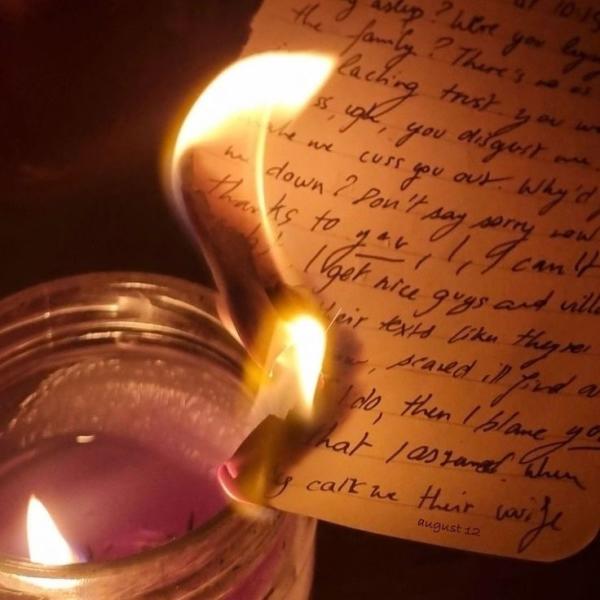 asleep? Were you
the family? There's no
lacking trust you
ugh, you disgust me
me cuss you out. Why'd
down? Don't say sorry now
thanks to you, I, I can't
I get nice guys and
their texts like they're
scared I'll find
do, then I blame you
that I assumed when
call me their wife
august 12